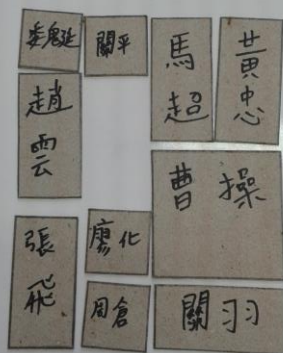 魏延
關平
馬超
黃忠
趙雲
曹操
張飛
廖化
周倉
關羽